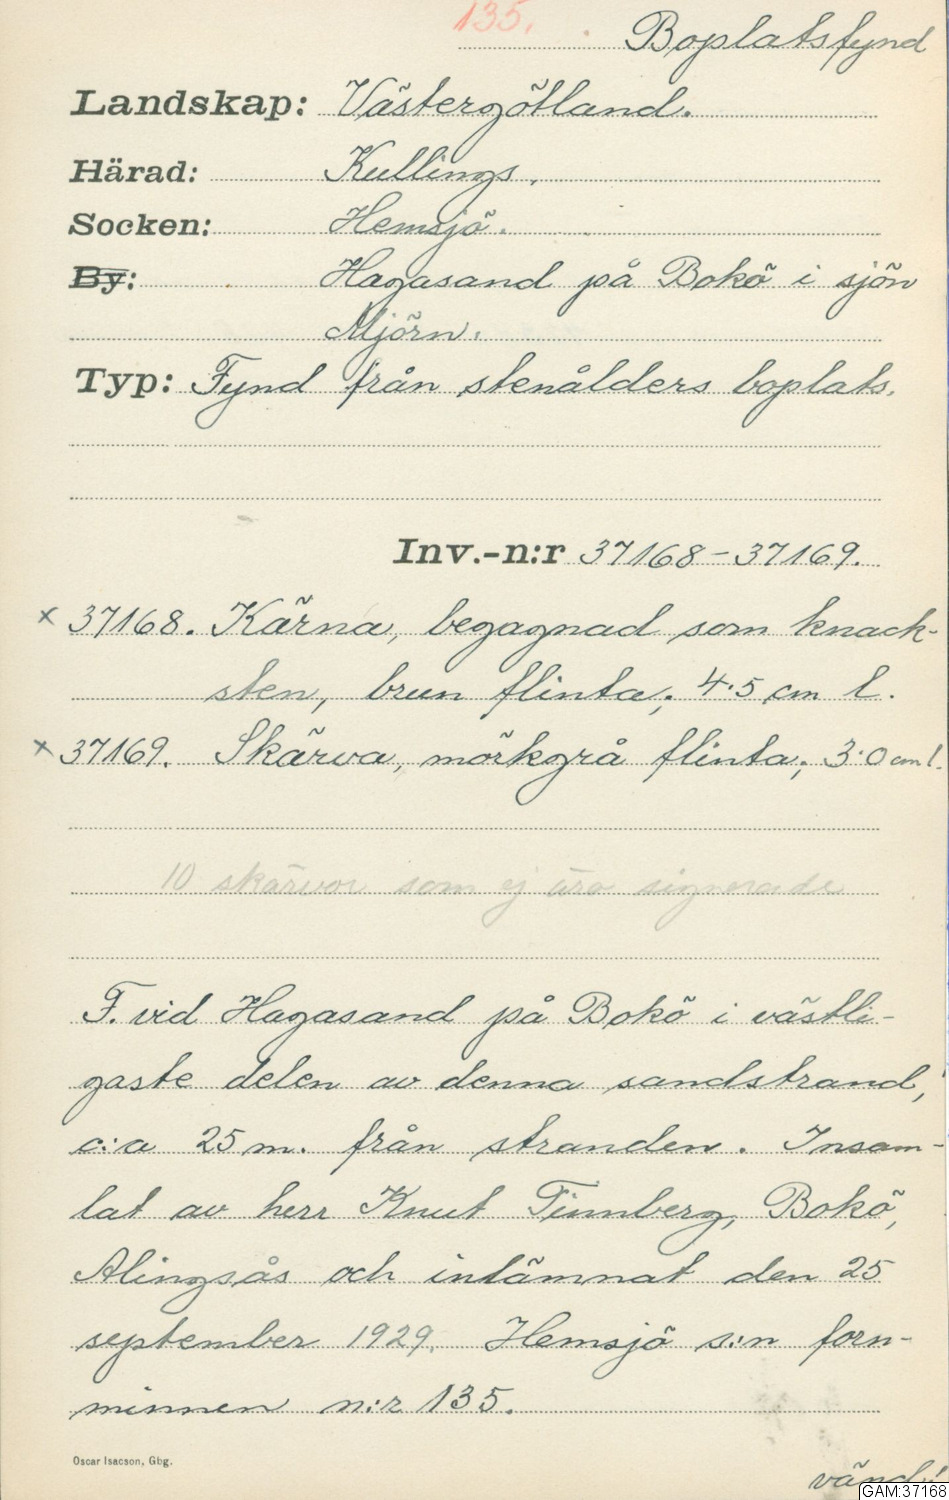 135.
Boplatsfynd
Landskap: Västergötland.
Härad: Kullings.
Socken: Hemsjö.
By: Hagasand på Bokö i sjön
Mjörn.
Typ: Fynd från stenålders boplats.
Inv.-n:r 37168-37169.
x 37168. Kärna, begagnad som knack-
sten, brun flinta; 4.5 cm l.
x 37169. Skärva, mörkgrå flinta; 3.0 cm l.
10 skärvor som ej äro signerade
F. vid Hagasand på Bokö i västli-
gaste delen av denna sandstrand,
c:a 25 m. från stranden. Insam-
lat av herr Knut Tinnberg, Bokö,
Alingsås och inlämnat den 25
september 1929. Hemsjö s:n forn-
minnen n:r 135.
Oscar Isacson, Gbg.
vänd!
GAM:37168